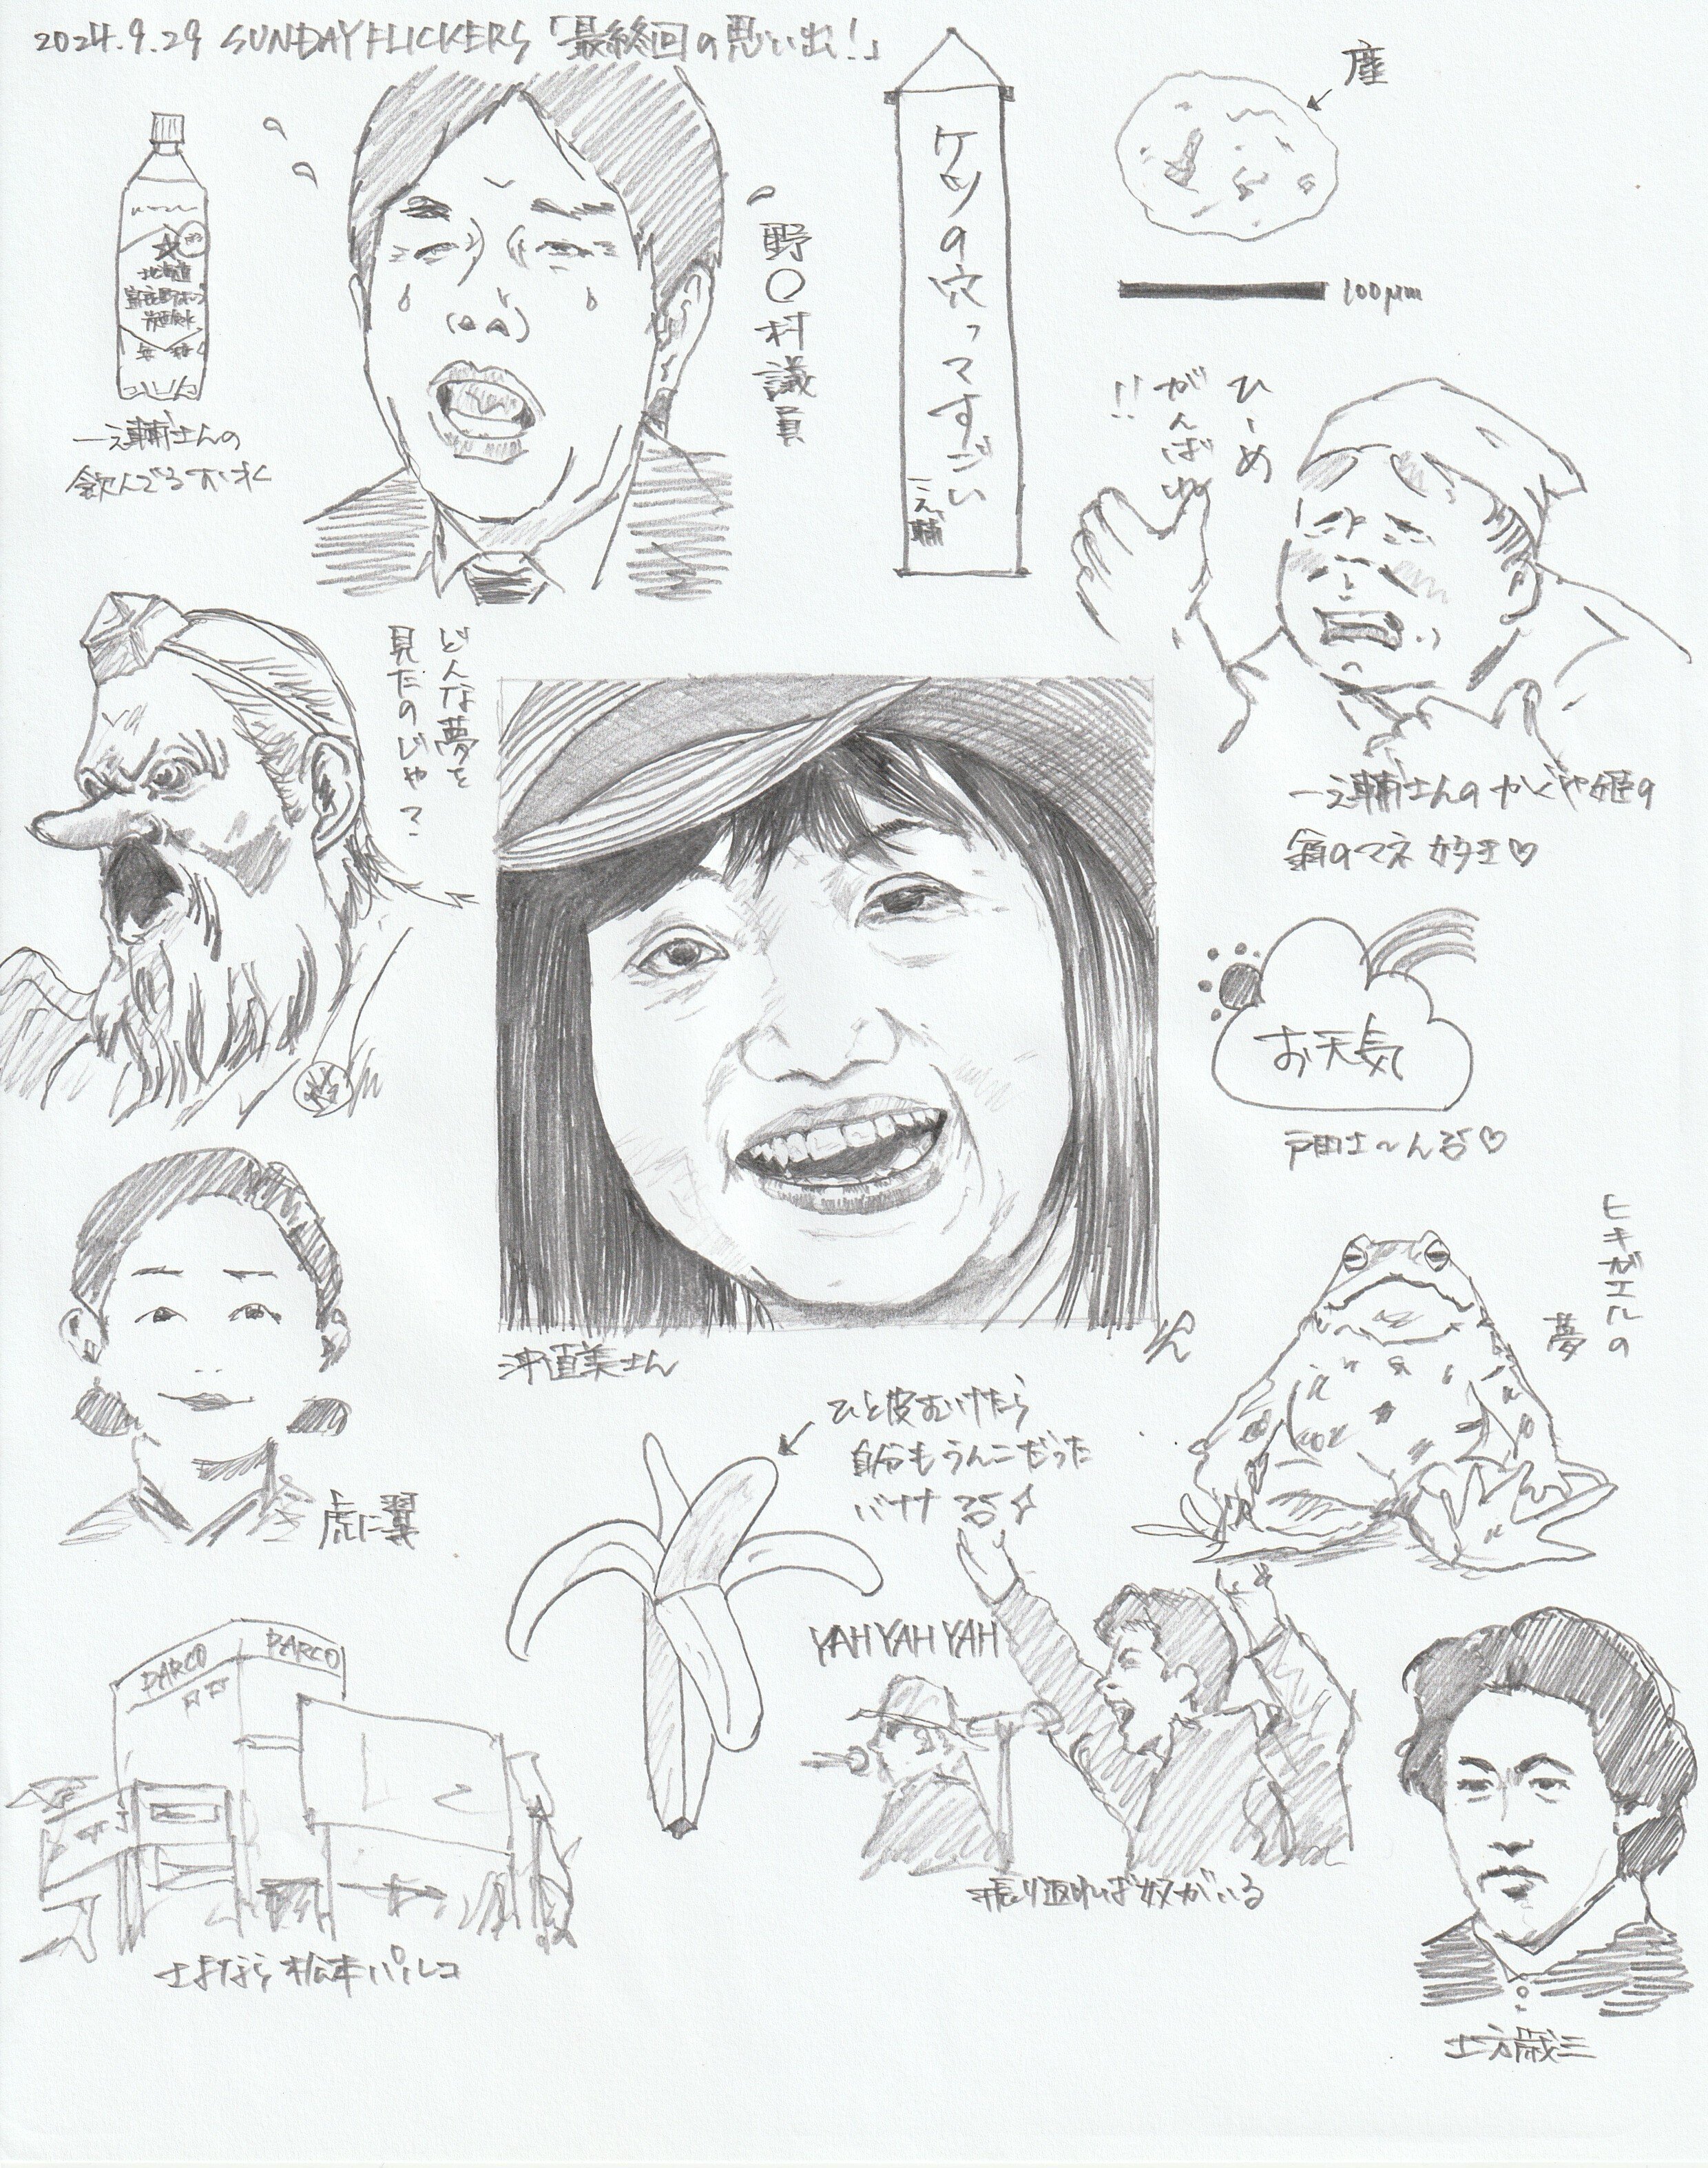 2024.9.29 SUNDAY FLICKERS「最終回の思い出!」
北海道
富良野ホップ
炭酸水
一之輔さんの
飲んでるおいしいやつ
野〇村議員
ケツの穴ってすごい
一之輔
塵
100μm
ひーめ
がんばれ
!!
一之輔さんのかぐや姫の
翁のマネ好き♡
どんな夢を
見たのじゃ?
お天気
戸田さ〜んる♡
沖直美さん
ヒキガエルの
夢
虎に翼
ひと皮むけたら
自分もうんこだった
バナナ
YAH YAH YAH
振り返れば奴がいる
PARCO
PARCO
さよなら松本パルコ
土方歳三